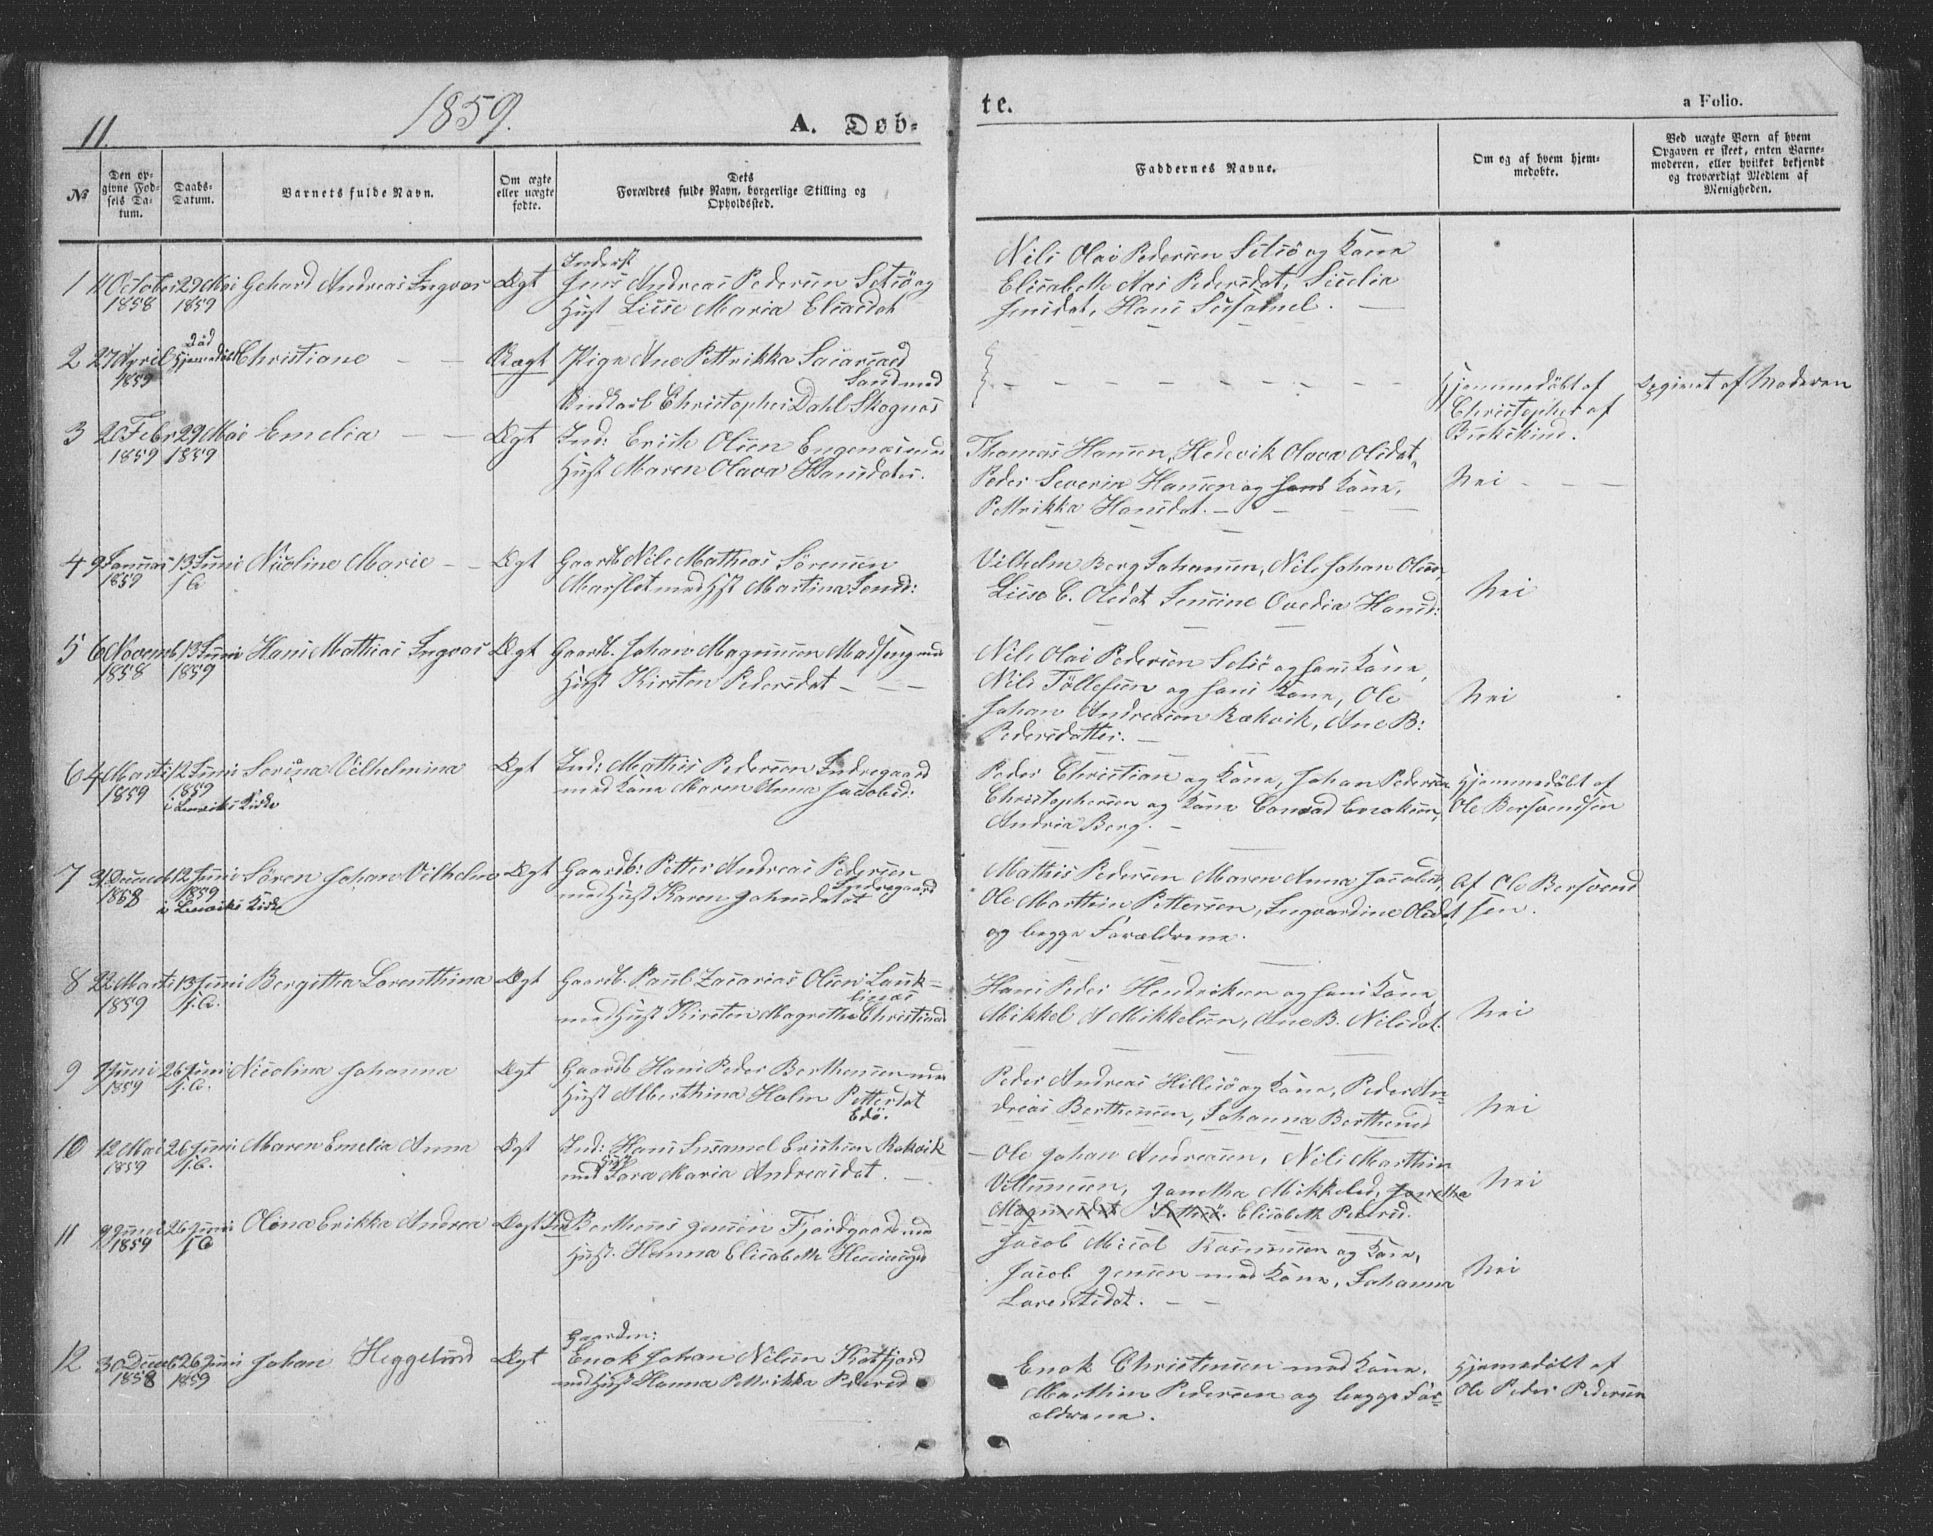 11.
1859.
A. Døb-
te.
a Folio.
№
Den op-
givne Fød-
sels Da-
tum.
Daabs-
Datum.
Barnets fulde Navn.
Om ægte
eller uægte
fødte.
Dets
Forældres fulde Navn, borgerlige Stilling og
Opholdssted.
Faddernes Navne.
Om og af hvem hjem-
medøbte.
Ved uægte Børn af hvem
Opgaven er skeet, enten Barne-
moderen, eller hvilket bekjendt
og troværdigt Medlem af
Menigheden.
1 11 October 29 Mai Gehard Andreas Ingvar Ægt
1858 1859
Inderst
Jens Andreas Pedersen Selsø og
Hust Lisse Maria Eliasdat
Nils Olai Pedersen Selsø og Kone
Elisabeth Aas Pedersdat,
Jensdat, Hans
2 27 April Død Hjemmedøbt Christiane Uægt
1859
Pige Ane Pettrikka
Sand med
Ungkarl Christopher Dahl Skognæs
Hjemmedøbt af
Christopher af
Bukskind.
Opgivet af Moderen
3 20 Febr 29 Mai Emelia Ægt
1859 1859
Ind: Erich Olsen Engenæs med
Hust Maren Olava Hansdatr.
Thomas Hansen, Hedevik Olava Olsdat,
Peder Severin Hansen og hans Kone,
Pettrikka Hansdat.
Nei
4 9 Januar 13 Juni Nicoline Marie Ægt
1859 f. C.
Gaardb Nils Mathias Sørensen
med Hst Martina Jensd:
Vilhelm Berg Johansen, Nils Johan Olsen,
Lisse C. Olsdat Ovedia Hansd:
Nei
5 6 Novemb 13 Juni Hans Mathias Ingvar Ægt
1858 1859
Gaardb. Johan Magnussen med
Hust Kirsten Pedersdat
Nils Olai Pedersen Selsø og hans Kone,
Nils Tøllefsen og hans Kone, Ole
Johan Andreassen Rækvik, Ane B:
Pedersdatter.
Nei
6 4 Marts 12 Juni Serina Vilhelmina Ægt
1859 1859
i Lenviks Kirke
Ind: Mathis Pedersen Indregaard
med Kone Maren Anna Jacobsd:
Peder Christian og Kone, Johan Pedersen
Christophersen og Kone Conrad Enoksen,
Andrea Berg.
Hjemmedøbt af
Ole Bersvendsen
7 31 Decemb 12 Juni Søren Johan Vilhelm Ægt
1858 1859
i Lenviks Kirke
Gaardb: Petter Andreas Pedersen
Indregaard
med Hust Karen Johnsdatat
Mathis Pedersen Maren Anna Jacobsdt,
Ole Marthin Pettersen, Ingvardine Olsdat,
og begge Forældrene.
Af Ole Bersvend
sen.
8 22 Marts 13 Juni Bergitha Lorenthina Ægt
1859 f. C.
Gaardb. Paul Zacarias Olsen Lauk-
linæs
med Hust Kirsten Magrethe Christiansd
Hans Peder Hendriksen og hans Kone,
Mikkel A Mikkelsen, Ane B. Nilsdat.
Nei
9 7 Juni 26 Juni Nicolina Johanna Ægt
1859 f. C.
Gaardb Hans Peder Berthensen med
Hust Alberthina Holm Pettersdat
Edø.
Peder Andreas Hillesø og Kone, Peder An-
dreas Berthensen, Johanna Berthensd
Nei
10 12 Mai 26 Juni Maren Emelia Anna Ægt
1859 f. C.
Ind: Hans Susamel Erichsen Rækvik
Hust
med Sara Maria Andreasdat.
Ole Johan Andreassen, Nils Marthin
Villumsen, Janetha Mikkelsd, Janetha
Magnusdat Elisabeth Pedersd.
Nei
11 9 Juni 26 Juni Olena Erikka Andrea Ægt
1859 f. C.
Ind Berthens Jensen Fjordgaard med
Hust: Hanna Elisabeth Henningsd
Jacob Micol Rasmussen og Kone,
Jacob Jensen med Kone, Johanna
Lorentsdat.
Nei
12 30 Decemb 26 Juni Johan Heggelund Ægt
1858 1859
Gaardm:
Enok Johan Nilsen Katfjord
med Hust Hanna Pettrikka Pedersd
Enok Christensen med Kone.
Marthin Pedersen og begge For-
ældrene.
Hjemmedøbt af
Ole Peder Pedersen